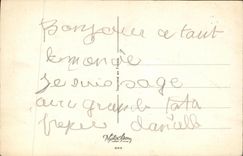 Bonjour a tout
le monde
je suis sage
avec grande tata
pepee danielle